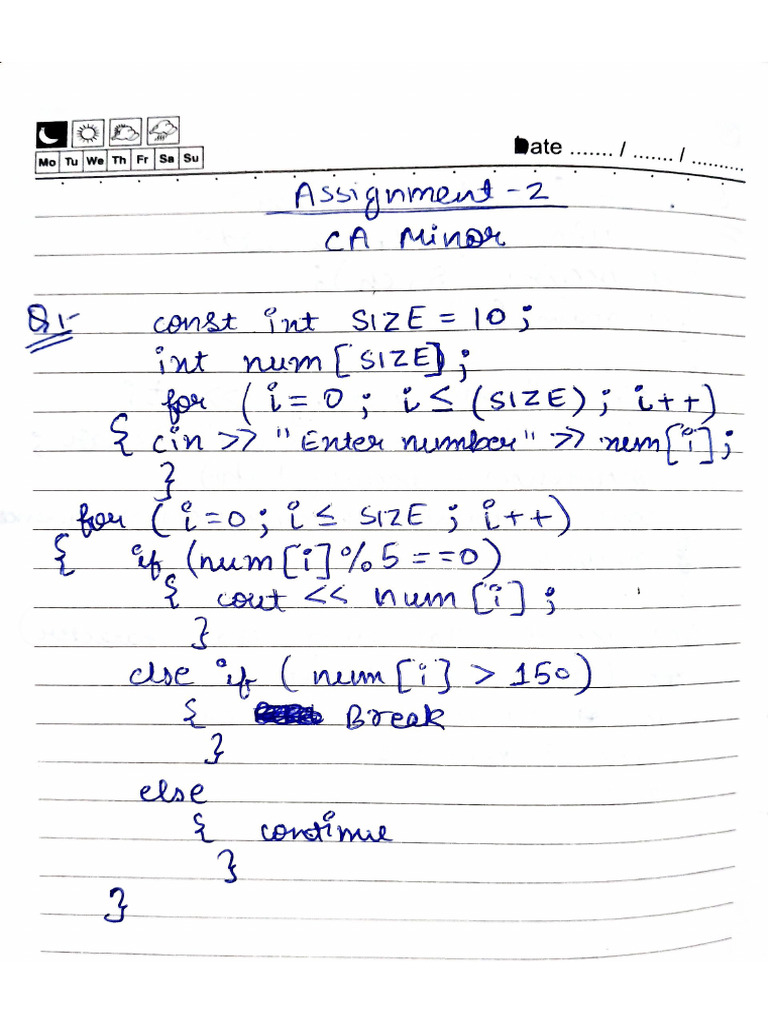 Mo Tu We Th Fr Sa Su
Date ....... / ....... / ..........
Assignment - 2
CA Minor
Q1- const int SIZE = 10 ;
int num [SIZE] ;
for ( i = 0 ; i ≤ (SIZE) ; i++)
{ cin >> "Enter number" >> num[i] ;
}
for ( i = 0 ; i ≤ SIZE ; i++)
{ if (num [i] % 5 == 0)
{ cout << num [i] ;
}
else if ( num [i] > 150)
{ Break
}
else
{ continue
}
}